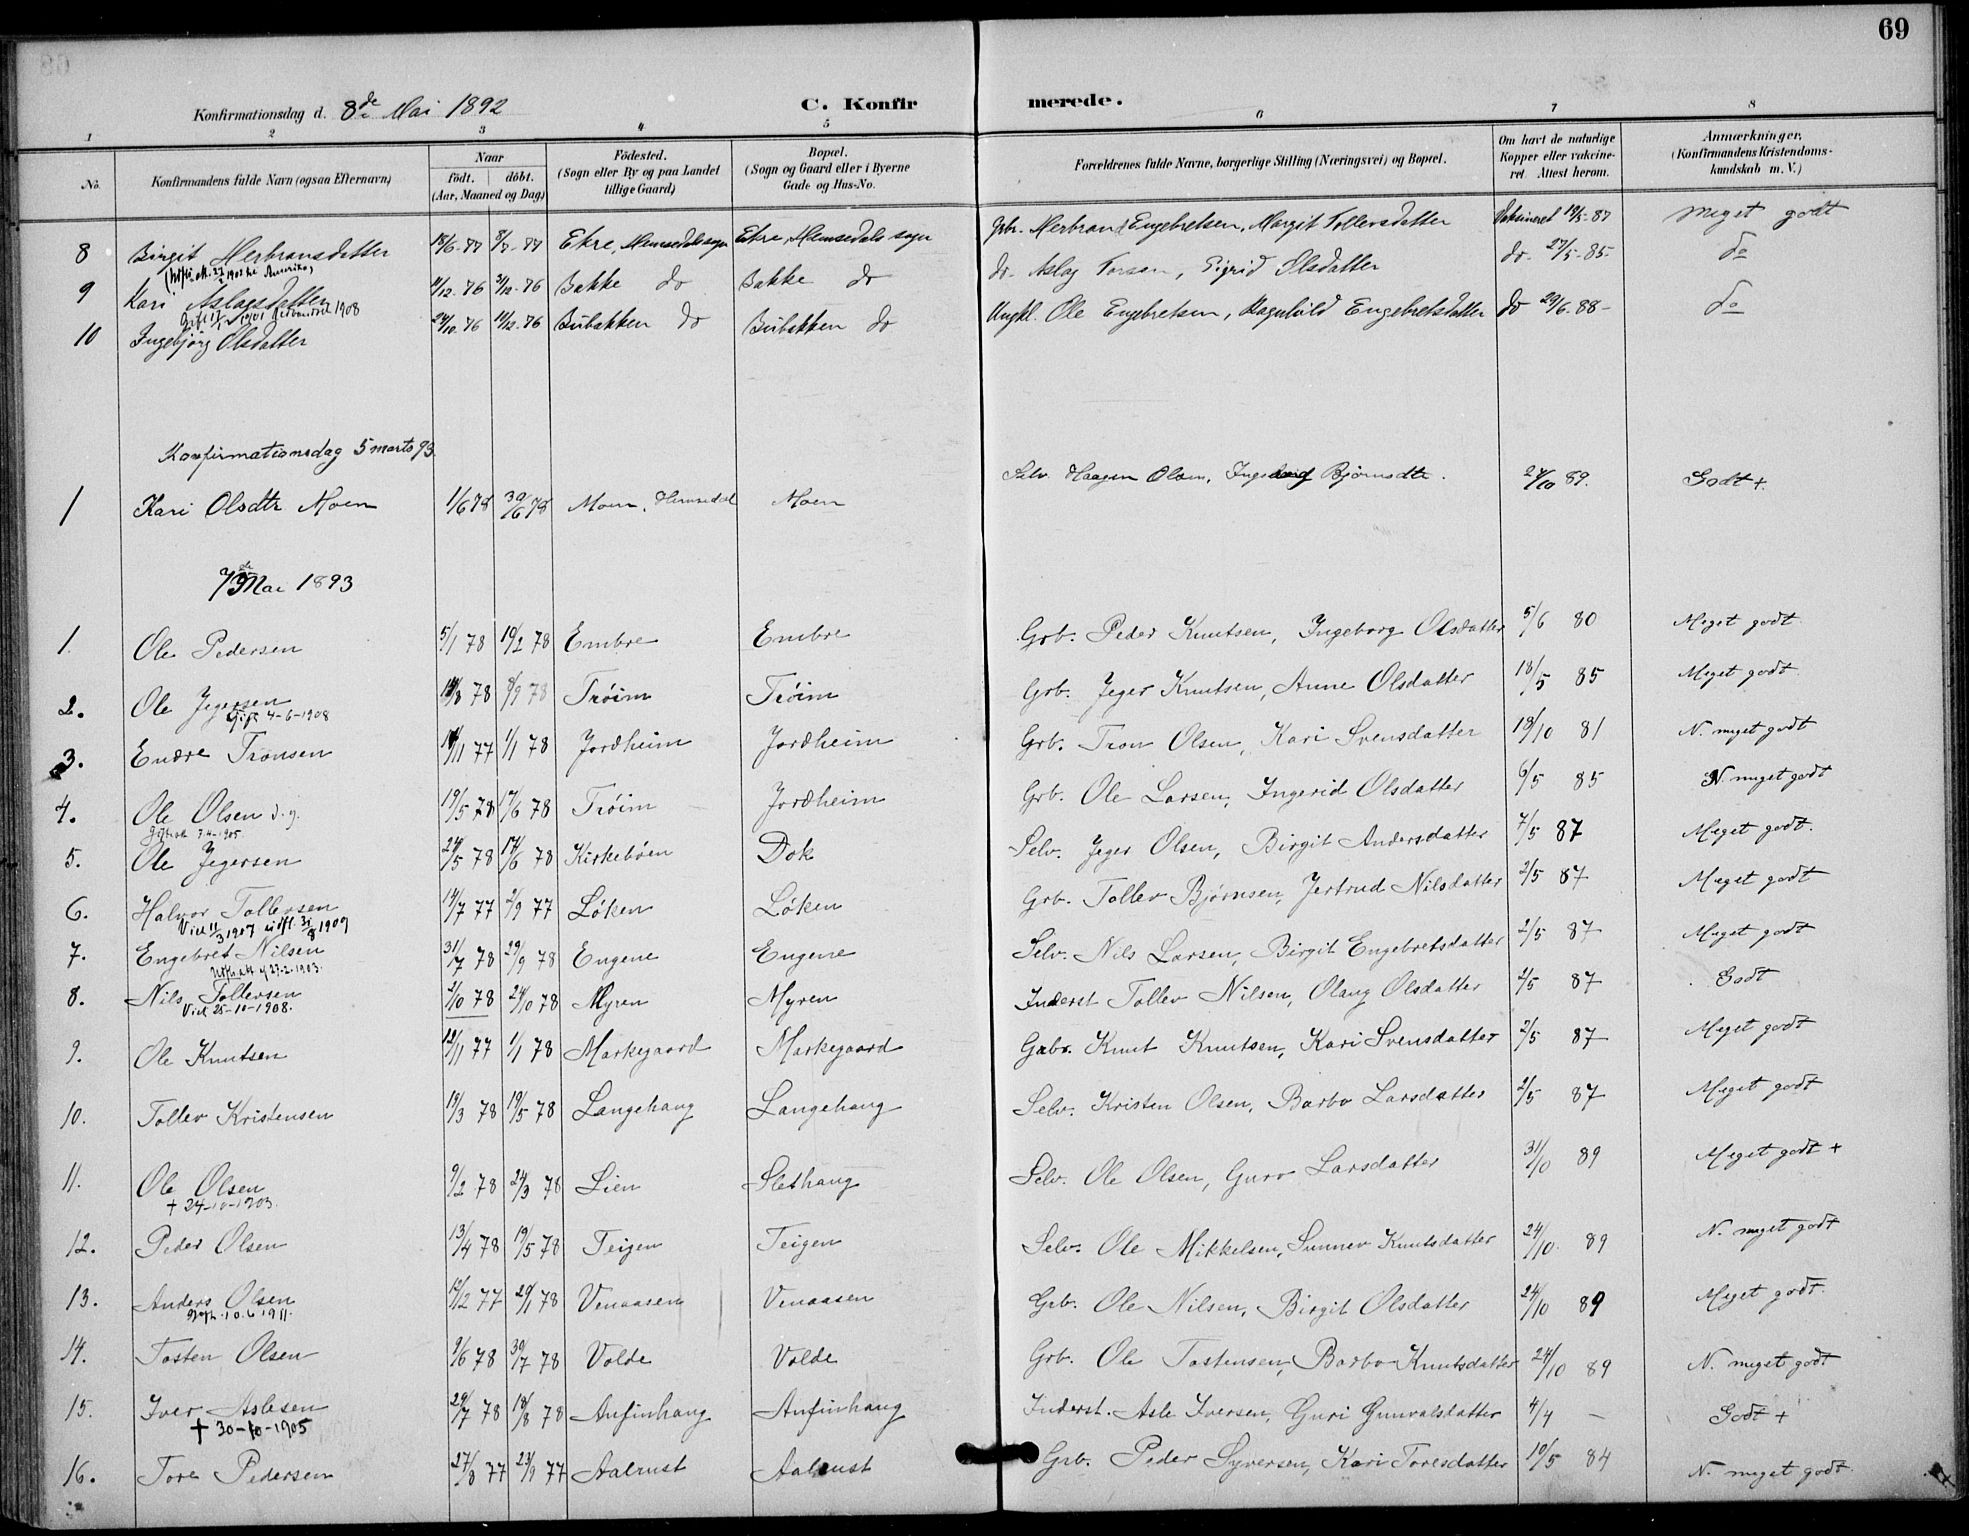 69
Konfirmationsdag d. 8de Mai 1892 C. Konfirmerede.
1 2 3 4 5 6 7 8
No. Konfirmandens fulde Navn (ogsaa Efternavn) Naar født. døbt. (Aar, Maaned og Dag) Fødested. (Sogn eller By og paa Landet tillige Gaard) Bopæl. (Sogn og Gaard eller i Byerne Gade og Hus-No. Forældrenes fulde Navne, borgerlige Stilling (Næringsvei) og Bopæl. Om havt de naturlige Kopper eller vakcineret. Attest herom. Anmærkninger. (Konfirmandens Kristendomskundskab m. V.)
8 Birgit Herbransdatter 18/6-77 8/7-77 Ekre, Hemsedals sogn Ekre, Hemsedals sogn Gbr. Herbrand Engebretsen, Margit Tollevsdatter Vaksineret 19/5-87 Meget godt
9 Kari Aslagsdatter 4/12-76 31/12-76 Bakke do Bakke do do Aslag Torsen, Sigrid Olsdatter do. 27/5-85- do
10 Ingebjørg Olsdatter 24/10-76 10/12-76 Bubakken do Bubakken do Ungkl. Ole Engebretsen, Ragnhild Engebretsdatter do 29/6-88- do
Konfirmationsdag 5 marts 93
1 Kari Olsdtr Moen 1/6 78 30/6 78 Moen, Hemsedal Moen Selv. Haagen Olsen, Ingeborg Bjørnsdtr. 24/10 89. Godt +
7de Mai 1893
1. Ole Pedersen 5/1 78 10/2 78 Embre Embre Grb. Peder Knutsen, Ingeborg Olsdatter 5/6 80 Meget godt
2. Ole Jegersen 14/8 78 8/9 78 Trøim Trøim Grb. Jeger Knutsen, Anne Olsdatter 18/5 85 Meget godt
Gift 4-6-1908
3. Endre Tronsen 14/11 77 1/1 78 Jordheim Jordheim Grb. Tron Olsen, Kari Svensdatter 18/10 81 N. meget godt
4. Ole Olsen d.y. 19/5 78 17/6 78 Trøim Jordheim Grb. Ole Larsen, Ingerid Olsdatter 6/5 85 N. meget godt
5. Ole Jegersen 24/5 78 17/6 78 Kirkebøen Dok Selv. Jeger Olsen, Birgit Andersdatter 7/5 87 Meget godt.
6. Halvor Tollevsen 14/7 77 2/9 77 Løken Løken Grb. Tollev Bjørnsen, Jertrud Nilsdatter 2/5 87 Meget godt
Viel 11/3 1907 31/8 1909
7. Engebret Nilsen 31/7 78 29/9 78 Eugene Eugene Selv. Nils Larsen, Birgit Engebretsdatter 2/5 87 Meget godt
27.2.1903.
8. Nils Tollevsen 2/10 78 24/10 78 Myren Myren Inderst Tollev Nilsen, Olaug Olsdatter 2/5 87 Godt
Viel 25-10-1908.
9. Ole Knutsen 12/11 77 1/1 78 Markegaard Markegaard Gabr. Knut Knutsen, Kari Svensdatter 2/5 87 Meget godt
10. Tollev Kristensen 19/3 78 19/5 78 Langehaug Langehaug Selv. Kristen Olsen, Barbo Larsdatter 2/5 87 Meget godt
11. Ole Olsen 9/2 78 24/3 78 Lien Slethaug Selv. Ole Olsen, Guro Larsdatter 31/10 89 Meget godt +
+ 24-10-1903.
12. Peder Olsen 13/4 78 19/5 78 Teigen Teigen Selv. Ole Mikkelsen, Sunnev Knutsdatter 24/10. 89 N. meget godt
13. Anders Olsen 12/12 77 20/1 78 Venaasen Venaasen Grb. Ole Nilsen, Birgit Olsdatter 24/10 89 Meget godt.
10.6.1911.
14. Tosten Olsen 9/6 78 30/7 78 Volde Volde Grb. Ole Tostensen, Barbo Knutsdatter 24/10 89 N. meget godt
15. Iver Aslesen 29/7 78 18/8 78 Anfinhaug Anfinhaug Inderst. Asle Iversen, Guri Gunvalsdatter 4/4 - Godt +
+ 30-10-1905
16. Tore Pedersen 27/8 77 23/9 77 Aalrust Aalrust Grb. Peder Syversen, Kari Toresdatter 10/5 84 N. meget godt